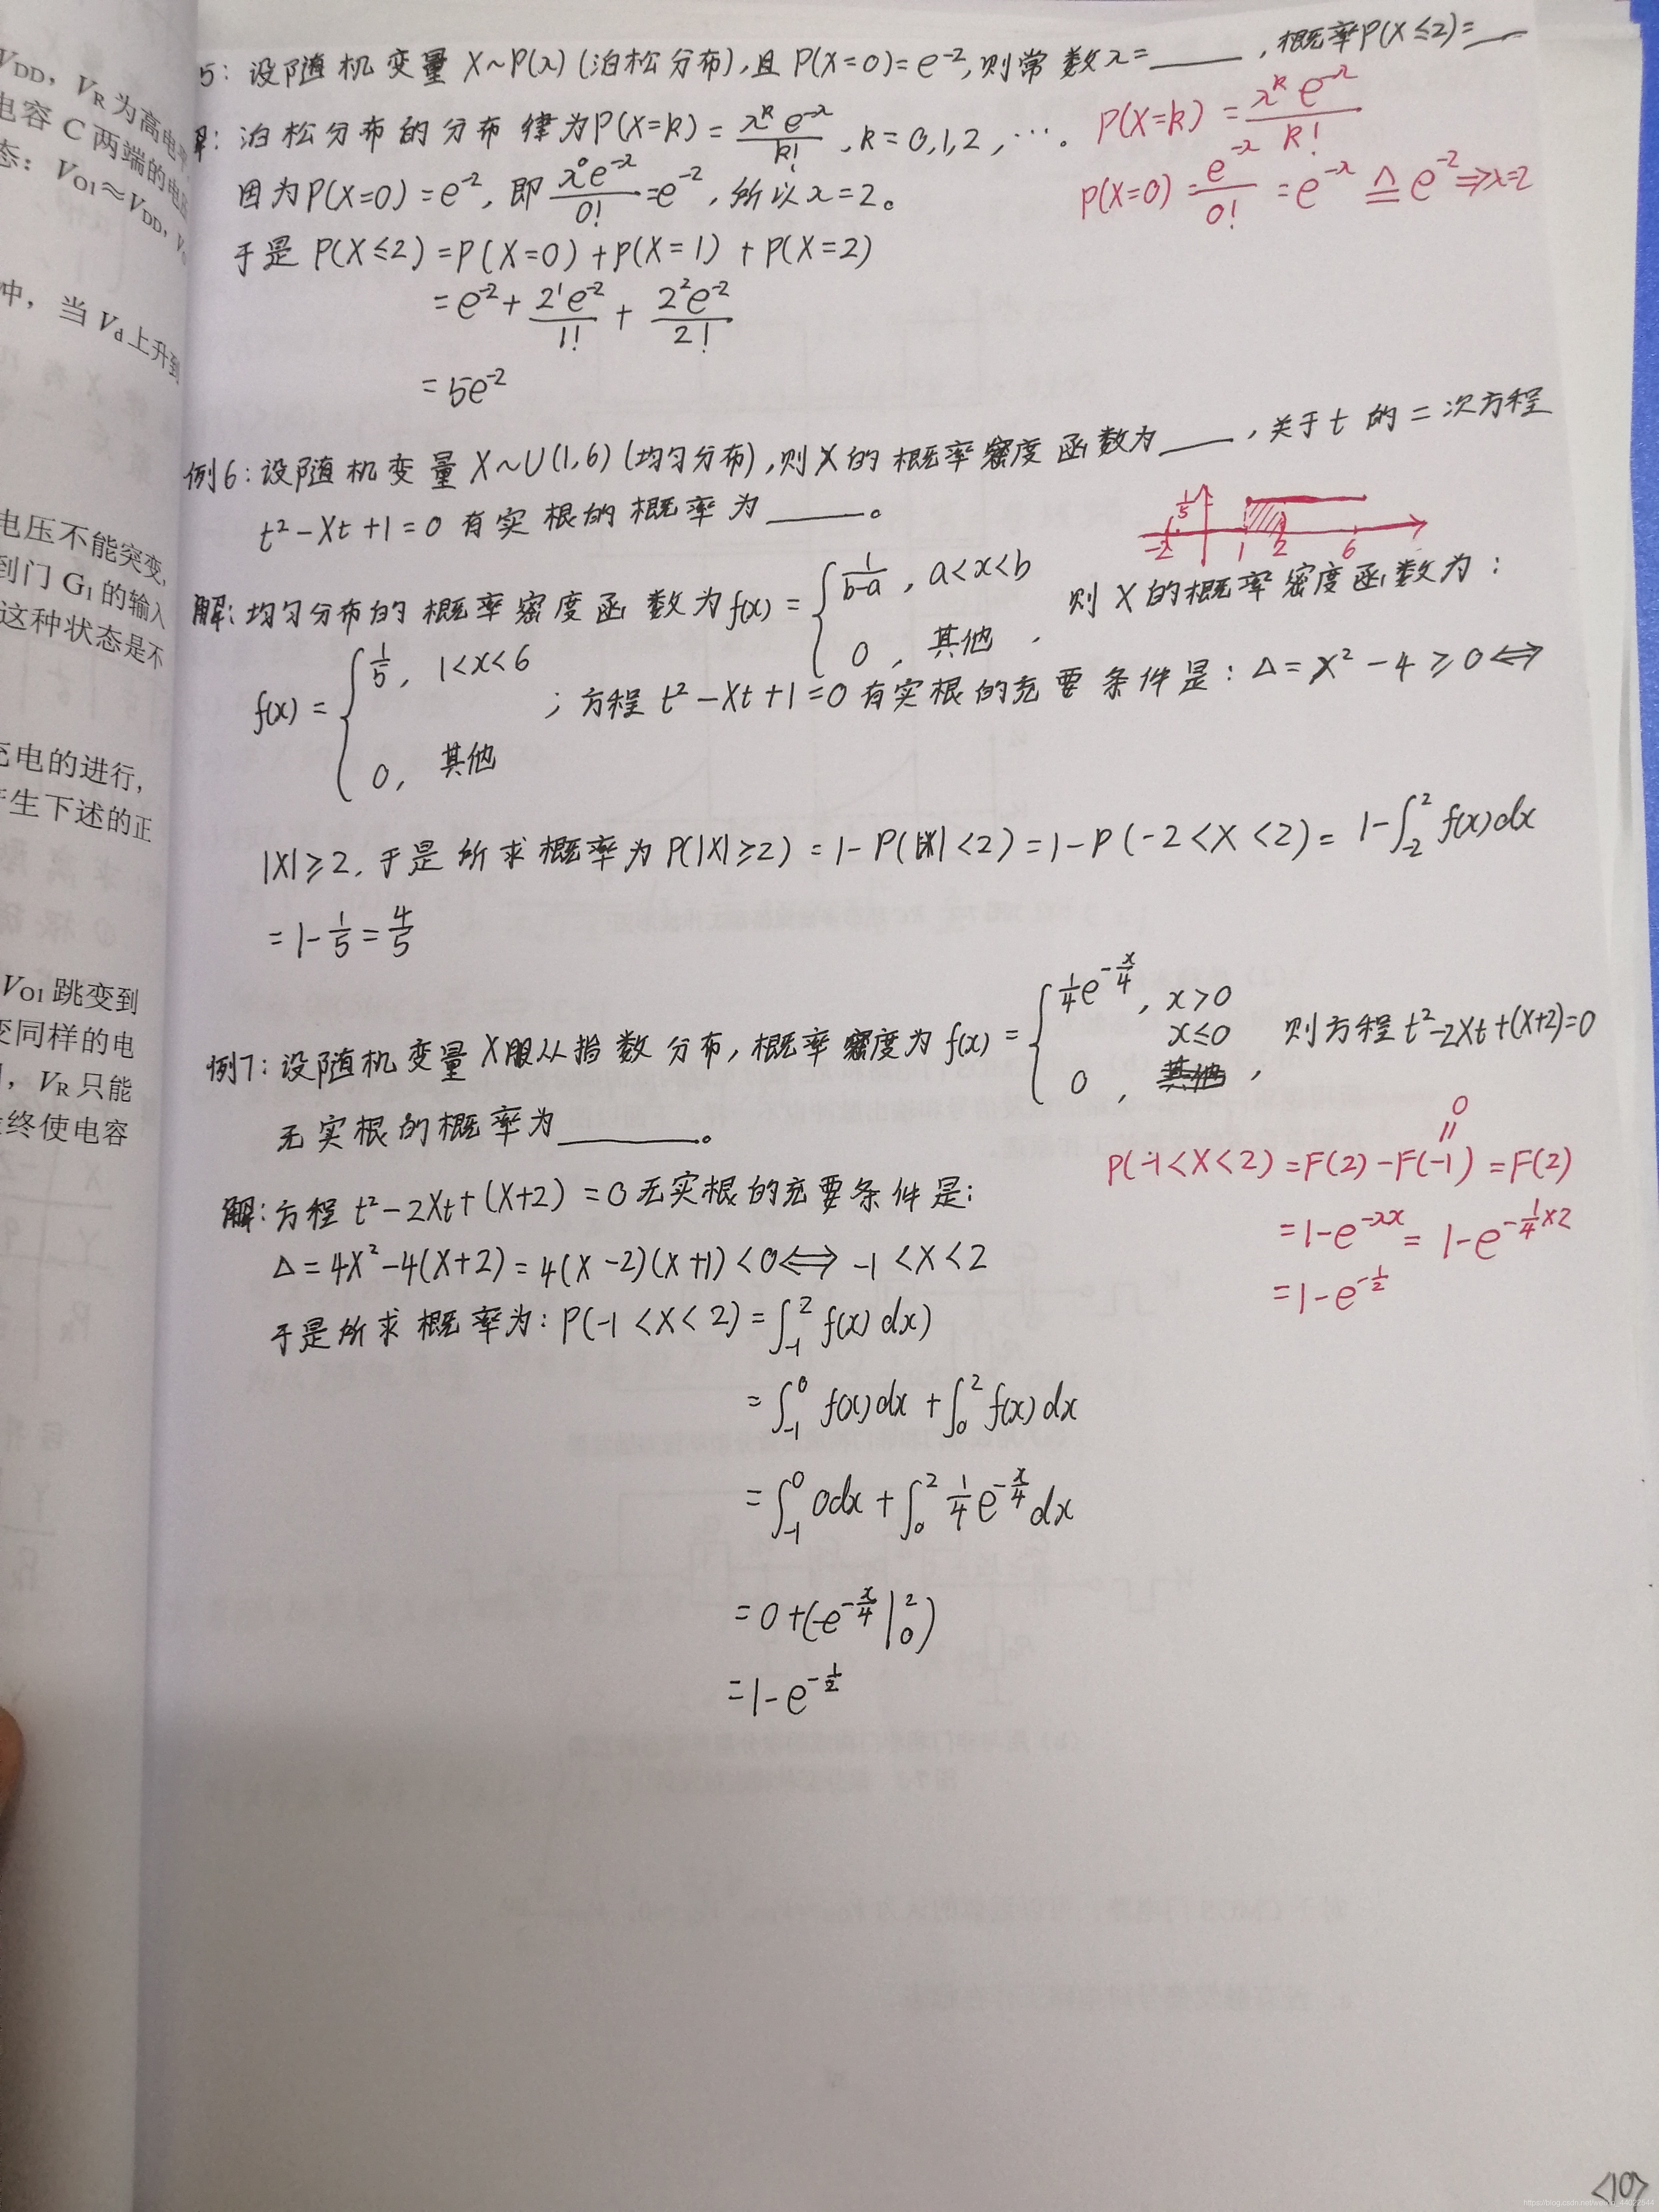 V_DD, V_R 为高电平
电容 C 两端的电压
态: V_O1≈V_DD, V
中, 当 V_d 上升到
电压不能突变,
到门 G₁ 的输入
这种状态是不
充电的进行,
产生下述的正
V_O1 跳变到
变同样的电
, V_R 只能
终使电容
5: 设随机变量 X~P(λ) (泊松分布), 且 P(X=0)=e⁻², 则常数λ=____, 概率P(X≤2)=__
解: 泊松分布的分布律为P(X=k)=λ^k e^(-λ)/k!, k=0,1,2,…。
P(X=k)=λ^k e^(-λ)/k!
因为P(X=0)=e⁻², 即 λ⁰e^(-λ)/0!=e⁻², 所以λ=2。
P(X=0)=e^(-λ)/0!=e^(-λ)≙e⁻²⇒λ=2
于是 P(X≤2)=P(X=0)+P(X=1)+P(X=2)
=e⁻²+2¹e⁻²/1!+2²e⁻²/2!
=5e⁻²
例6: 设随机变量 X~U(1,6) (均匀分布), 则X的概率密度函数为____, 关于t的二次方程
t²-Xt+1=0 有实根的概率为____。
1/5
-2 1 2 6
解: 均匀分布的概率密度函数为f(x)={1/(b-a), a<x<b
0, 其他. 则X的概率密度函数为:
f(x)={1/5, 1<x<6
0, 其他
; 方程 t²-Xt+1=0 有实根的充要条件是: Δ=X²-4≥0⟺
|X|≥2, 于是所求概率为P(|X|≥2)=1-P(|X|<2)=1-P(-2<X<2)=1-∫₋₂² f(x)dx
=1-1/5=4/5
例7: 设随机变量X服从指数分布, 概率密度为f(x)={1/4 e^(-x/4), x>0
0, x≤0, 则方程 t²-2Xt+(X+2)=0
无实根的概率为______。
解: 方程 t²-2Xt+(X+2)=0无实根的充要条件是:
Δ=4X²-4(X+2)=4(X-2)(X+1)<0⟺-1<X<2
于是所求概率为: P(-1<X<2)=∫₋₁² f(x)dx)
=∫₋₁⁰ f(x)dx+∫₀² f(x)dx
=∫₋₁⁰ 0dx+∫₀² 1/4 e^(-x/4)dx
=0+(-e^(-x/4)|₀²)
=1-e^(-1/2)
0
=
P(-1<X<2)=F(2)-F(-1)=F(2)
=1-e^(-λx)=1-e^(-1/4×2)
=1-e^(-1/2)
<10>